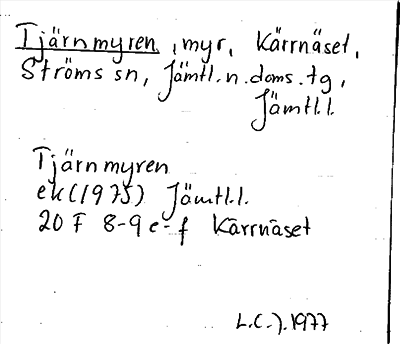 Tjärnmyren, myr, Kärrnäset,
Ströms sn, Jämtl. n. doms. tg,
Jämtl.l.
Tjärnmyren
ek (1975) Jämtl.l.
20 F 8-9 e-f Kärrnäset
L.C.J. 1977